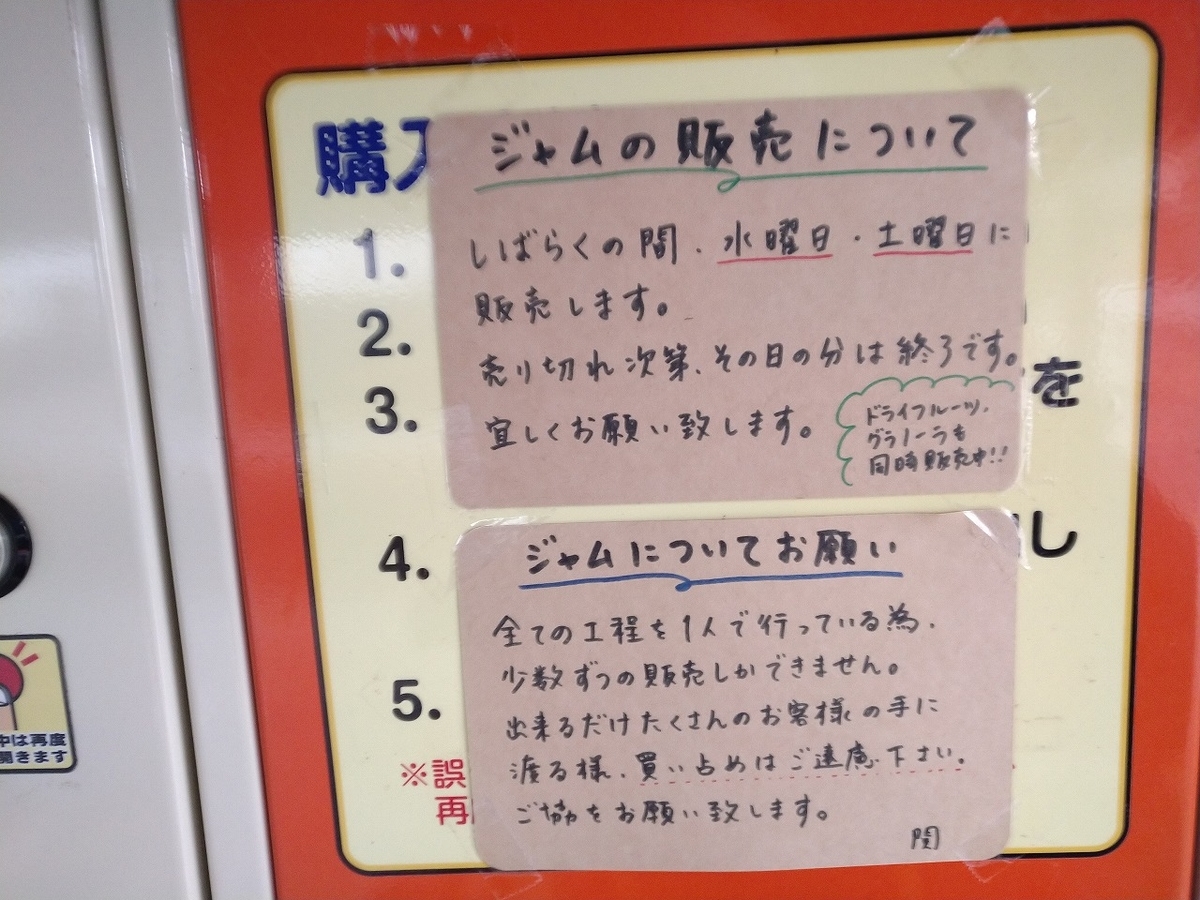 購入
ジャムの販売について
1.
しばらくの間、水曜日・土曜日に
販売します。
2.
売り切れ次第、その日の分は終了です。
を
3.
宜しくお願い致します。
ドライフルーツ、
グラノーラも
同時販売中!!
ジャムについてお願い
し
4.
全ての工程を1人で行っている為、
少数ずつの販売しかできません。
5.
出来るだけたくさんのお客様の手に
渡る様、買い占めはご遠慮下さい。
※誤
再
ご協をお願い致します。
関
中は再度
開きます